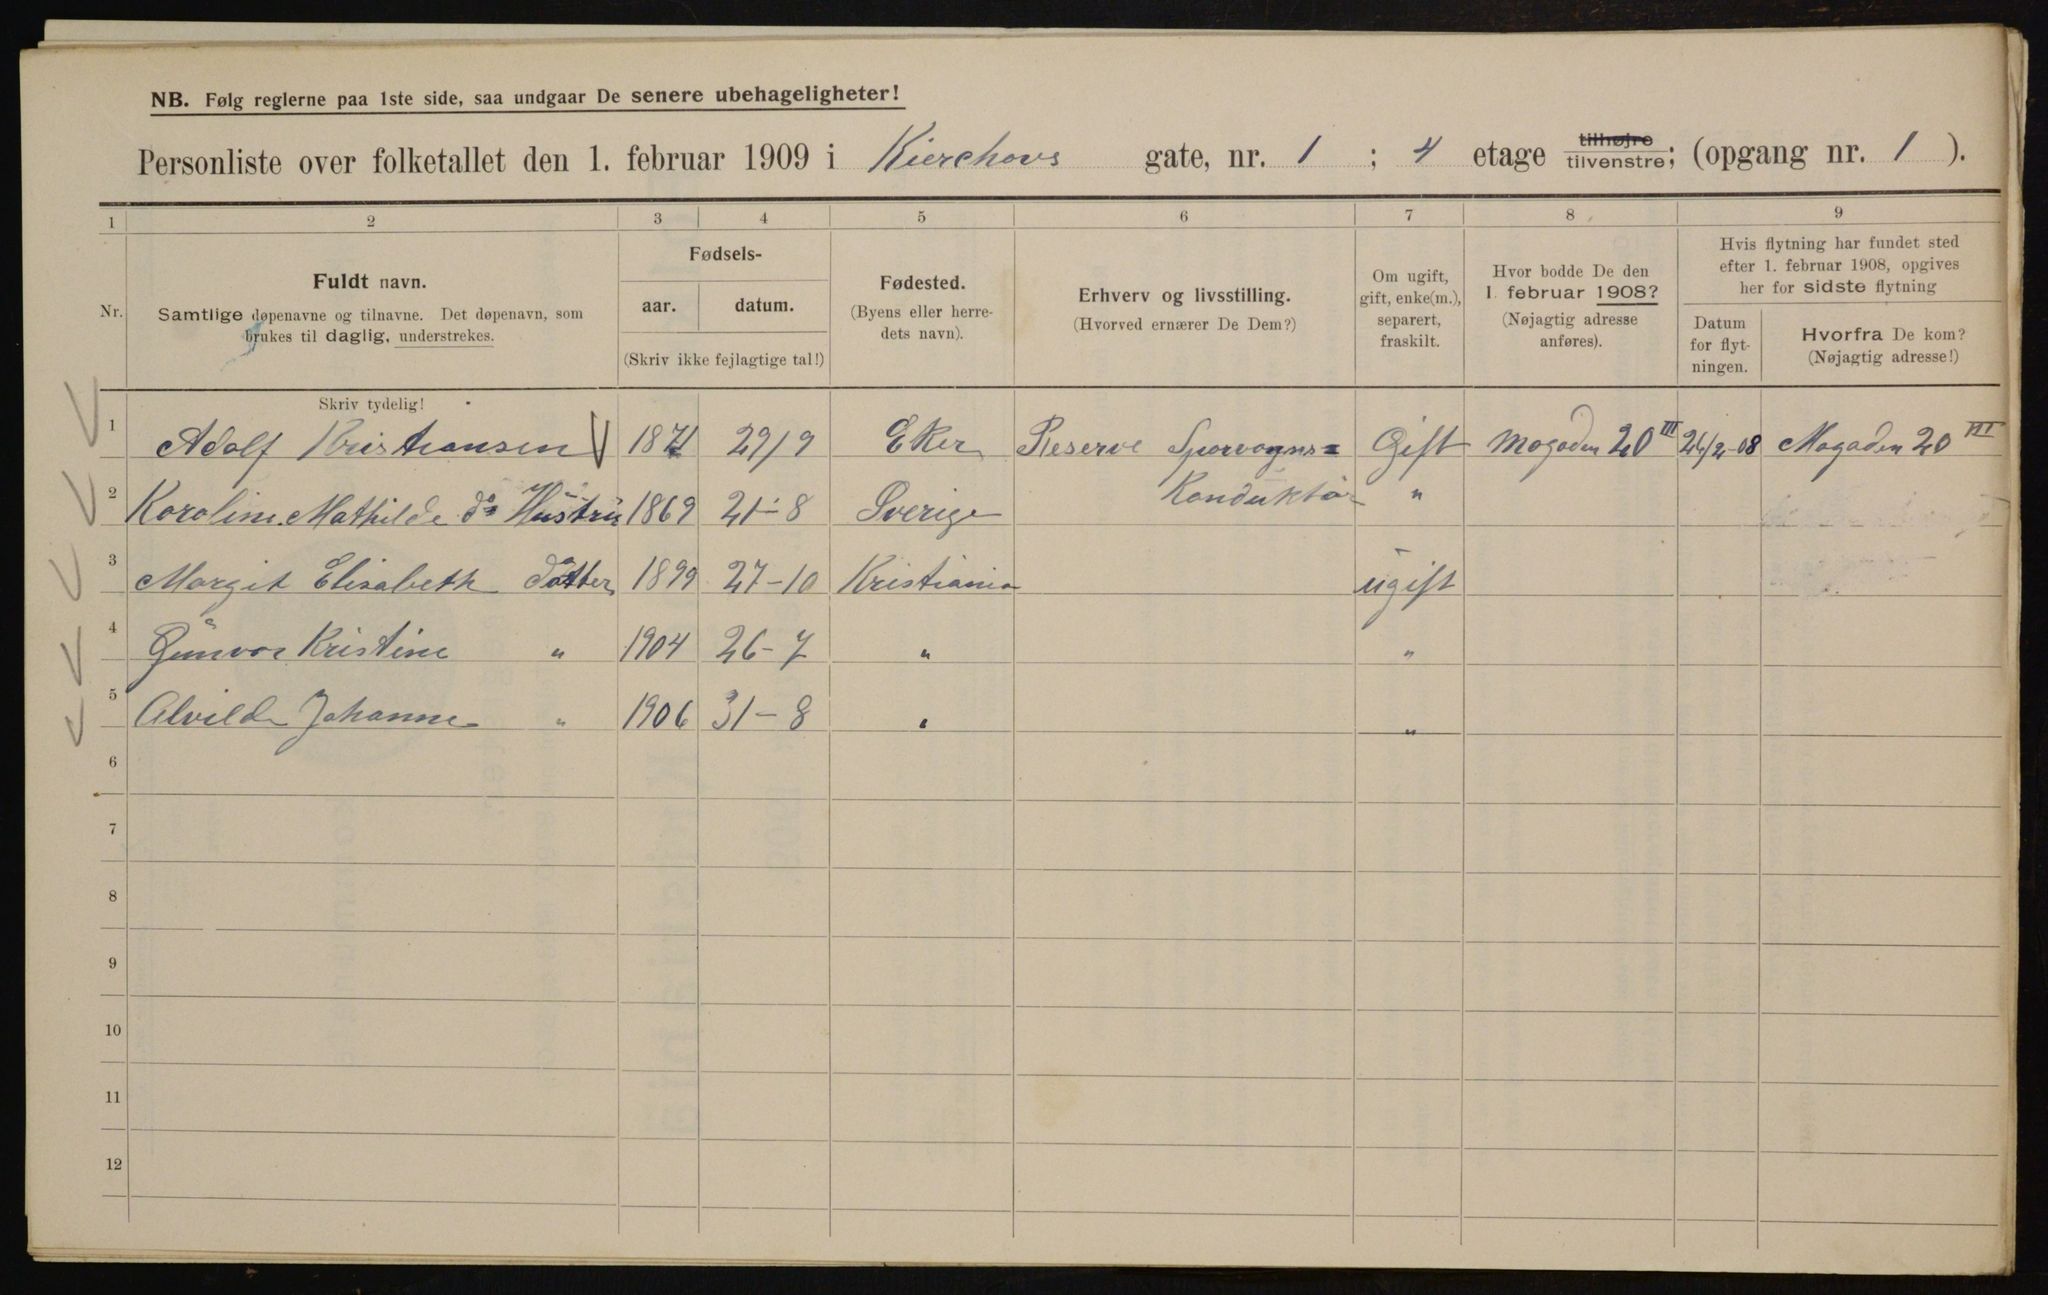 NB. Følg reglerne paa 1ste side, saa undgaar De senere ubehageligheter!
Personliste over folketallet den 1. februar 1909 i Kierchovs gate, nr. 1 ; 4 etage tilhøjre tilvenstre; (opgang nr. 1 ).
1 2 3 4 5 6 7 8 9
Nr.
Fuldt navn.
Samtlige døpenavne og tilnavne. Det døpenavn, som
brukes til daglig, understrekes.
Skriv tydelig!
Fødsels-
aar. datum.
(Skriv ikke fejlagtige tal!)
Fødested.
(Byens eller herre-
dets navn).
Erhverv og livsstilling.
(Hvorved ernærer De Dem?)
Om ugift,
gift, enke(m.),
separert,
fraskilt.
Hvor bodde De den
1. februar 1908?
(Nøjagtig adresse
anføres).
Hvis flytning har fundet sted
efter 1. februar 1908, opgives
her for sidste flytning
Datum
for flyt-
ningen.
Hvorfra De kom?
(Nøjagtig adresse!)
1 Adolf Kristiansen 1871 29/9 Eker Reserve Sporvogns= Gift Mogaden 20 III 26/2-08 Mogaden 20 III
Konduktør
2 Karoline Mathilde do Hustru 1869 21-8 Sverige "
3 Margit Elisabeth Datter 1899 27-10 Kristiania ugift
4 Gunvor Kristine " 1904 26-7 " "
5 Alvilde Johanne " 1906 31-8 " "
6
7
8
9
10
11
12